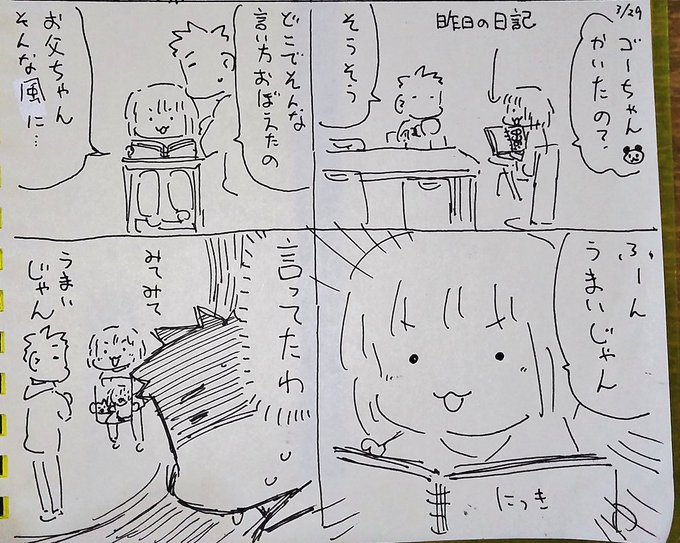 3/29
ゴーちゃん
かいたの?
昨日の日記
そうそう
ふーん
うまいじゃん
にっき
どこでそんな
言い方おぼえたの
お父ちゃん
そんな風に…
言ってたわ
みてみて
うまい
じゃん